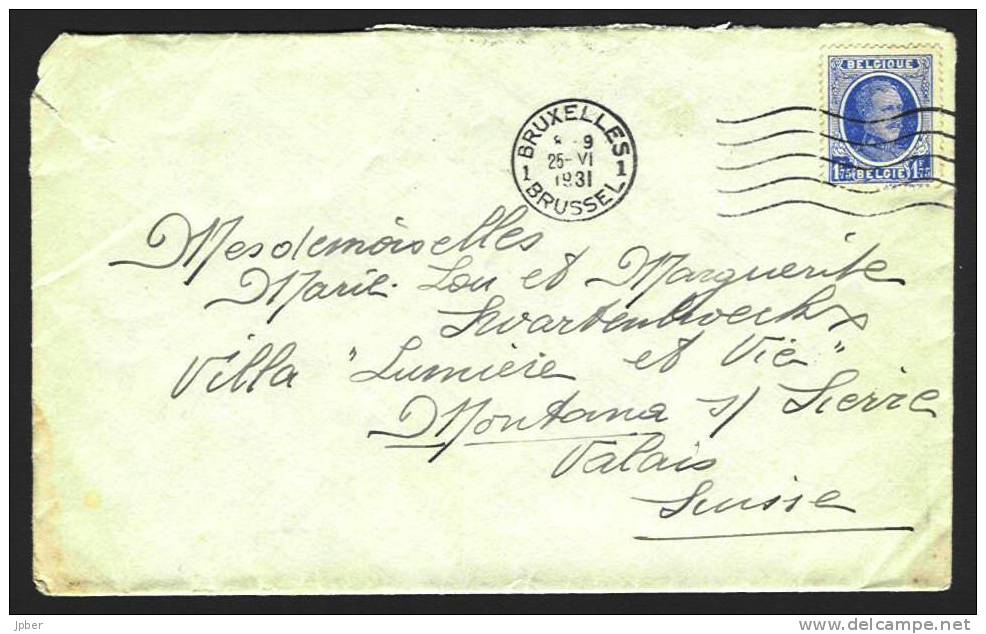 BELGIQUE
1F75 BELGIË 1F75
BRUXELLES
8-9
1 25-VI 1
1931
BRUSSEL
Mesdemoiselles
Marie-Lou et Marguerite
Villa "Lumière et Vie"
Montana s/ Sierre
Valais
Suisse
jpber
www.delcampe.net